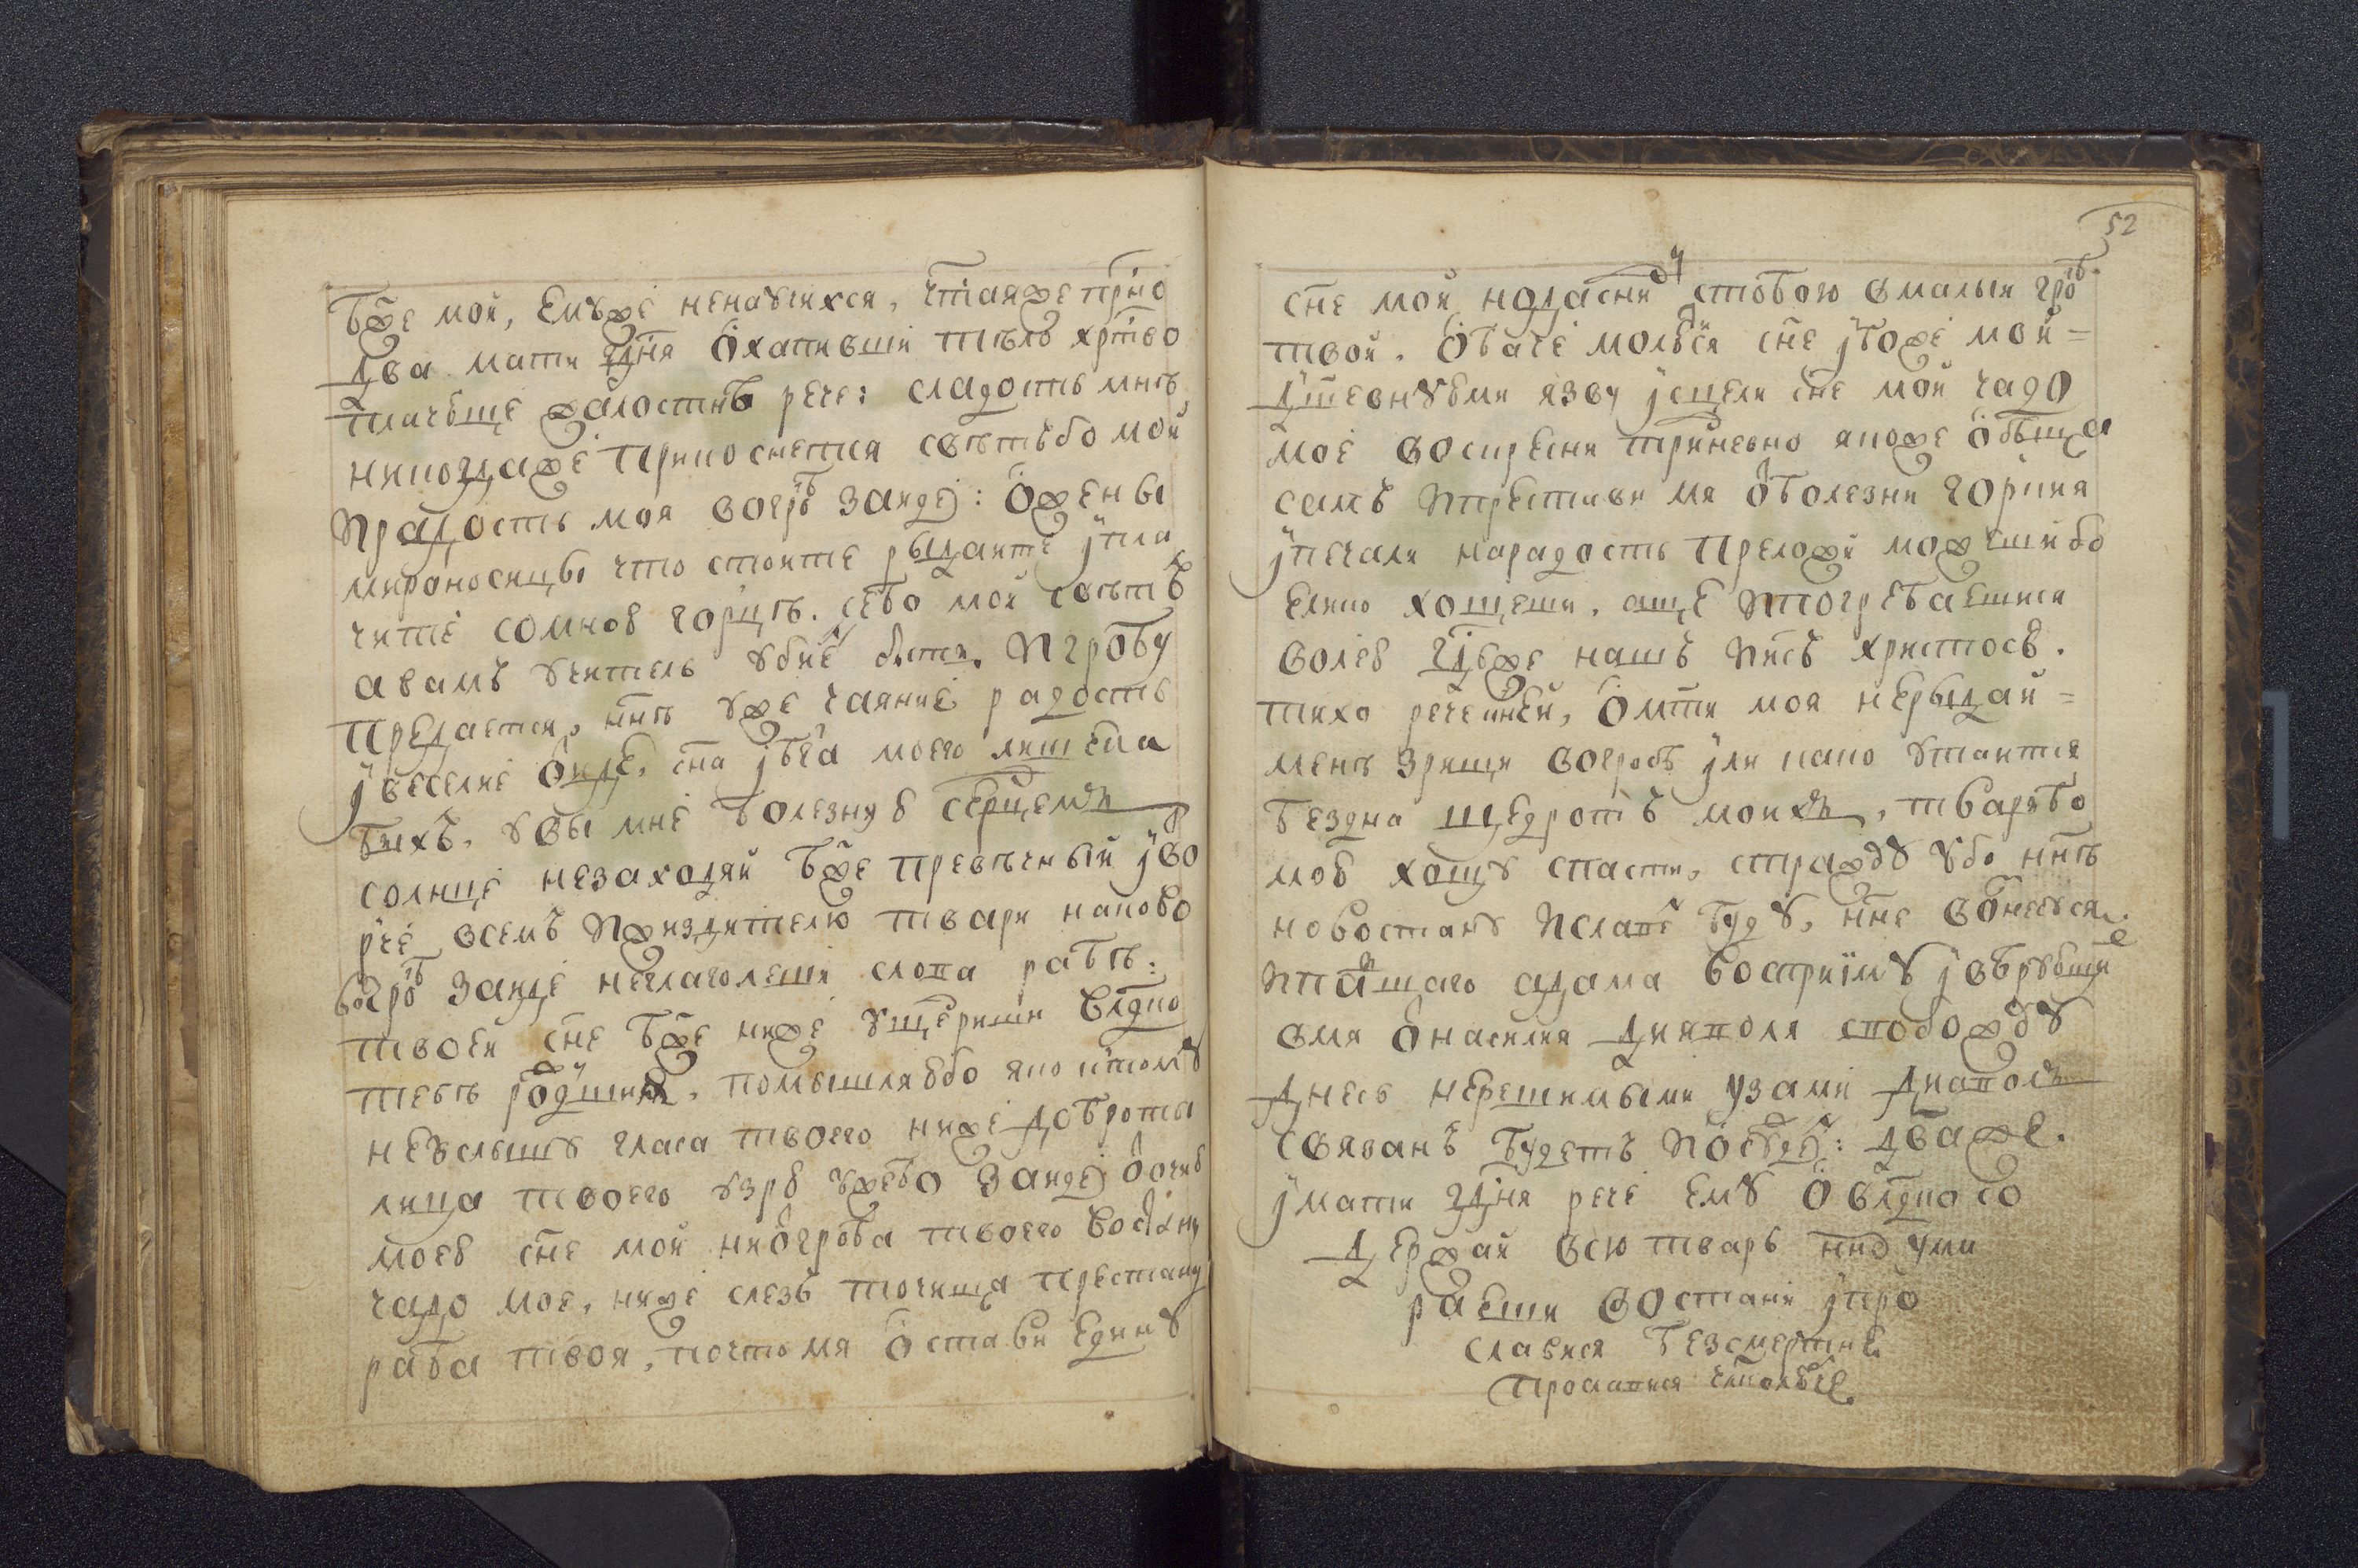 Бж҃е мой, Емꙋже ненаꙋчихся, ст҃аяже прⷭ҇но
Дв҃а мати гд҃ня Охапивши тѣло хрⷭ҇тво
плачꙋще жалостнѡ рече: сладость мнѣ
никогдаже прикоснется свѣтъбо мой
и радость моя вогроⷠ зайде: О жены
мироносицы что стоите рыдайте и пла
чите сомноꙋ горцѣ. себо мой свѣтъ
авамъ ꙋчитель ꙋбиеⷩ бысть. и гробꙋ
предается, нн҃ѣ ꙋже чаяние радость
и веселие Оиде, сн҃а и бг҃а моего лишена
быхъ. ꙋвы мнѣ болезную серⷣцемъ
солнце незаходяй бж҃е превѣчный и во
рче всемъ и жиздителю твари како во
вогроⷠ зайде неглаголеши слова рабѣ
твоей сн҃е бж҃е ниже ꙋщедриши влⷣко
тебѣ рождшиⷯ. помышляюбо яко ктомꙋ
неꙋслышꙋ гласа твоего ниже доброты
лица твоего ꙋзрю ꙋжебо зайде Оочию
моею сн҃е мой ни Огроба твоего востанꙋ
чадо мое, ниже слезъ точища престанꙋ
раба твоя, почто мя Остави Единꙋ
52
сн҃е мой стобою вмалый гроⷠ
твой. Обаче молюся сн҃е и боже мой=
дш҃евнꙋюми язвꙋ исцели сн҃е мой чадо
мое воскресни триⷣневно якоже Обѣща
самъ и престави мя Оболезни горкия
и печали нарадость преложи можешибо
Елико хощеши. аще и погребаешися
волею бж҃е нашъ исъ христосъ.
тихо рече кней, Омт҃и моя нерыдай=
мене зрящи вогробѣ или како ꙋтаится
бездна щедротъ моихъ, тварьбо
мою хощꙋ спасти, страждꙋ ꙋбо нн҃ѣ
новостанꙋ и славеⷩ бꙋдꙋ, вонесꙋся.
и падшаго адама восприимꙋ и верꙋющи
вмя Онасилия дияпола слобождꙋ
Днесь нерешимыми ꙋзами диаполъ
связанъ бꙋдетъ Дваже.
и мати гд҃ня рече Емꙋ О влⷣко со
Держай всю тварь ꙋми
раеши востани и про
славися безсмертне